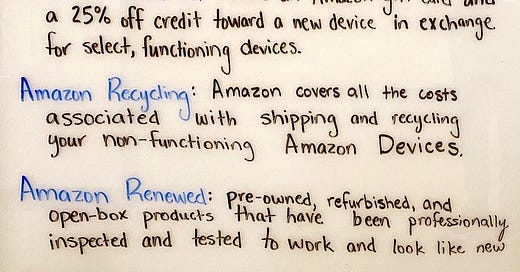 a 25% off credit toward a new device in exchange
for select, functioning devices.
Amazon Recycling: Amazon covers all the costs
associated with shipping and recycling
your non-functioning Amazon Devices.
Amazon Renewed: pre-owned, refurbished, and
open-box products that have been professionally
inspected and tested to work and look like new